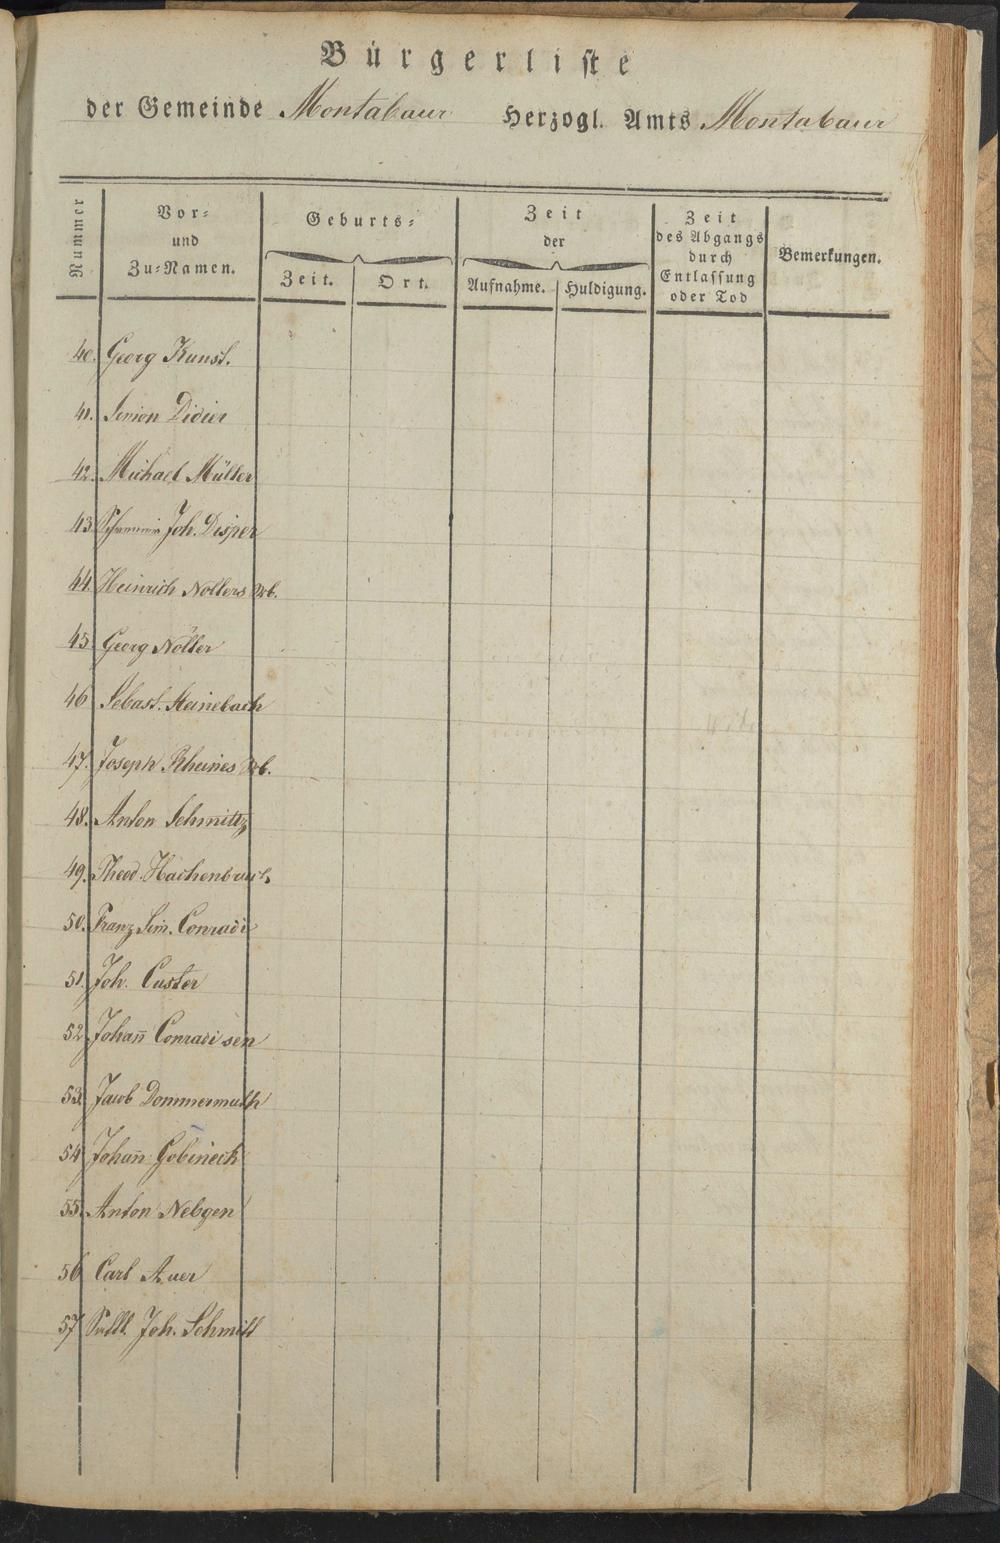 Bürgerliste
der Gemeinde Montabaur Herzogl. Amts Montabaur
Nummer
Vor-
und
Zu-Namen.
Geburts-
Zeit. Ort.
Zeit
der
Aufnahme. Huldigung.
Zeit
des Abgangs
durch
Entlassung
oder Tod
Bemerkungen.
40. Georg Kunst.
41. Simon Didier
42. Michael Müller
43 Joh. Disper
44. Heinrich Nollers Wb.
45. Georg Nöller
46 Sebast. Steinebach
47. Joseph Rheines Wb.
48. Anton Schmittz
49. Theod. Hachenbruch
50. Franz Sim. Conradi
51. Joh. Custer
52 Johan̄ Conradi sen
53. Jacob Dommermuth
54 Johan̄ Göbineck
55. Anton Nebgen
56 Carl Auer
57 Joh. Schmitt